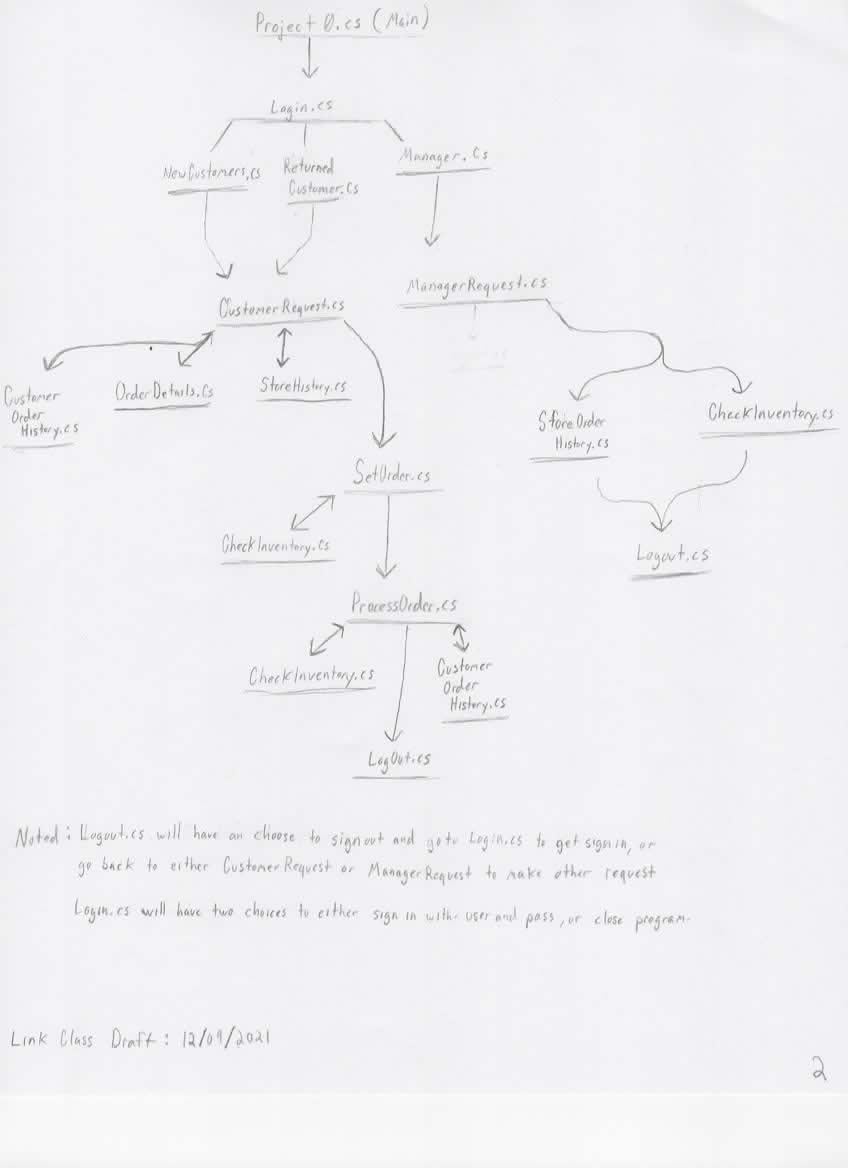 Project 0.cs (Main)
Login.cs
NewCustomers.cs
Returned
Customer.cs
Manager.cs
CustomerRequest.cs
ManagerRequest.cs
Customer
Order
History.cs
OrderDetails.cs
StoreHistory.cs
Store Order
History.cs
CheckInventory.cs
SetOrder.cs
CheckInventory.cs
Logout.cs
ProcessOrder.cs
CheckInventory.cs
Customer
Order
History.cs
LogOut.cs
Noted: Logout.cs will have an choose to signout and go to Login.cs to get sign in, or
go back to either CustomerRequest or ManagerRequest to make other request
Login.cs will have two choices to either sign in with user and pass, or close program.
Link Class Draft: 12/09/2021
2